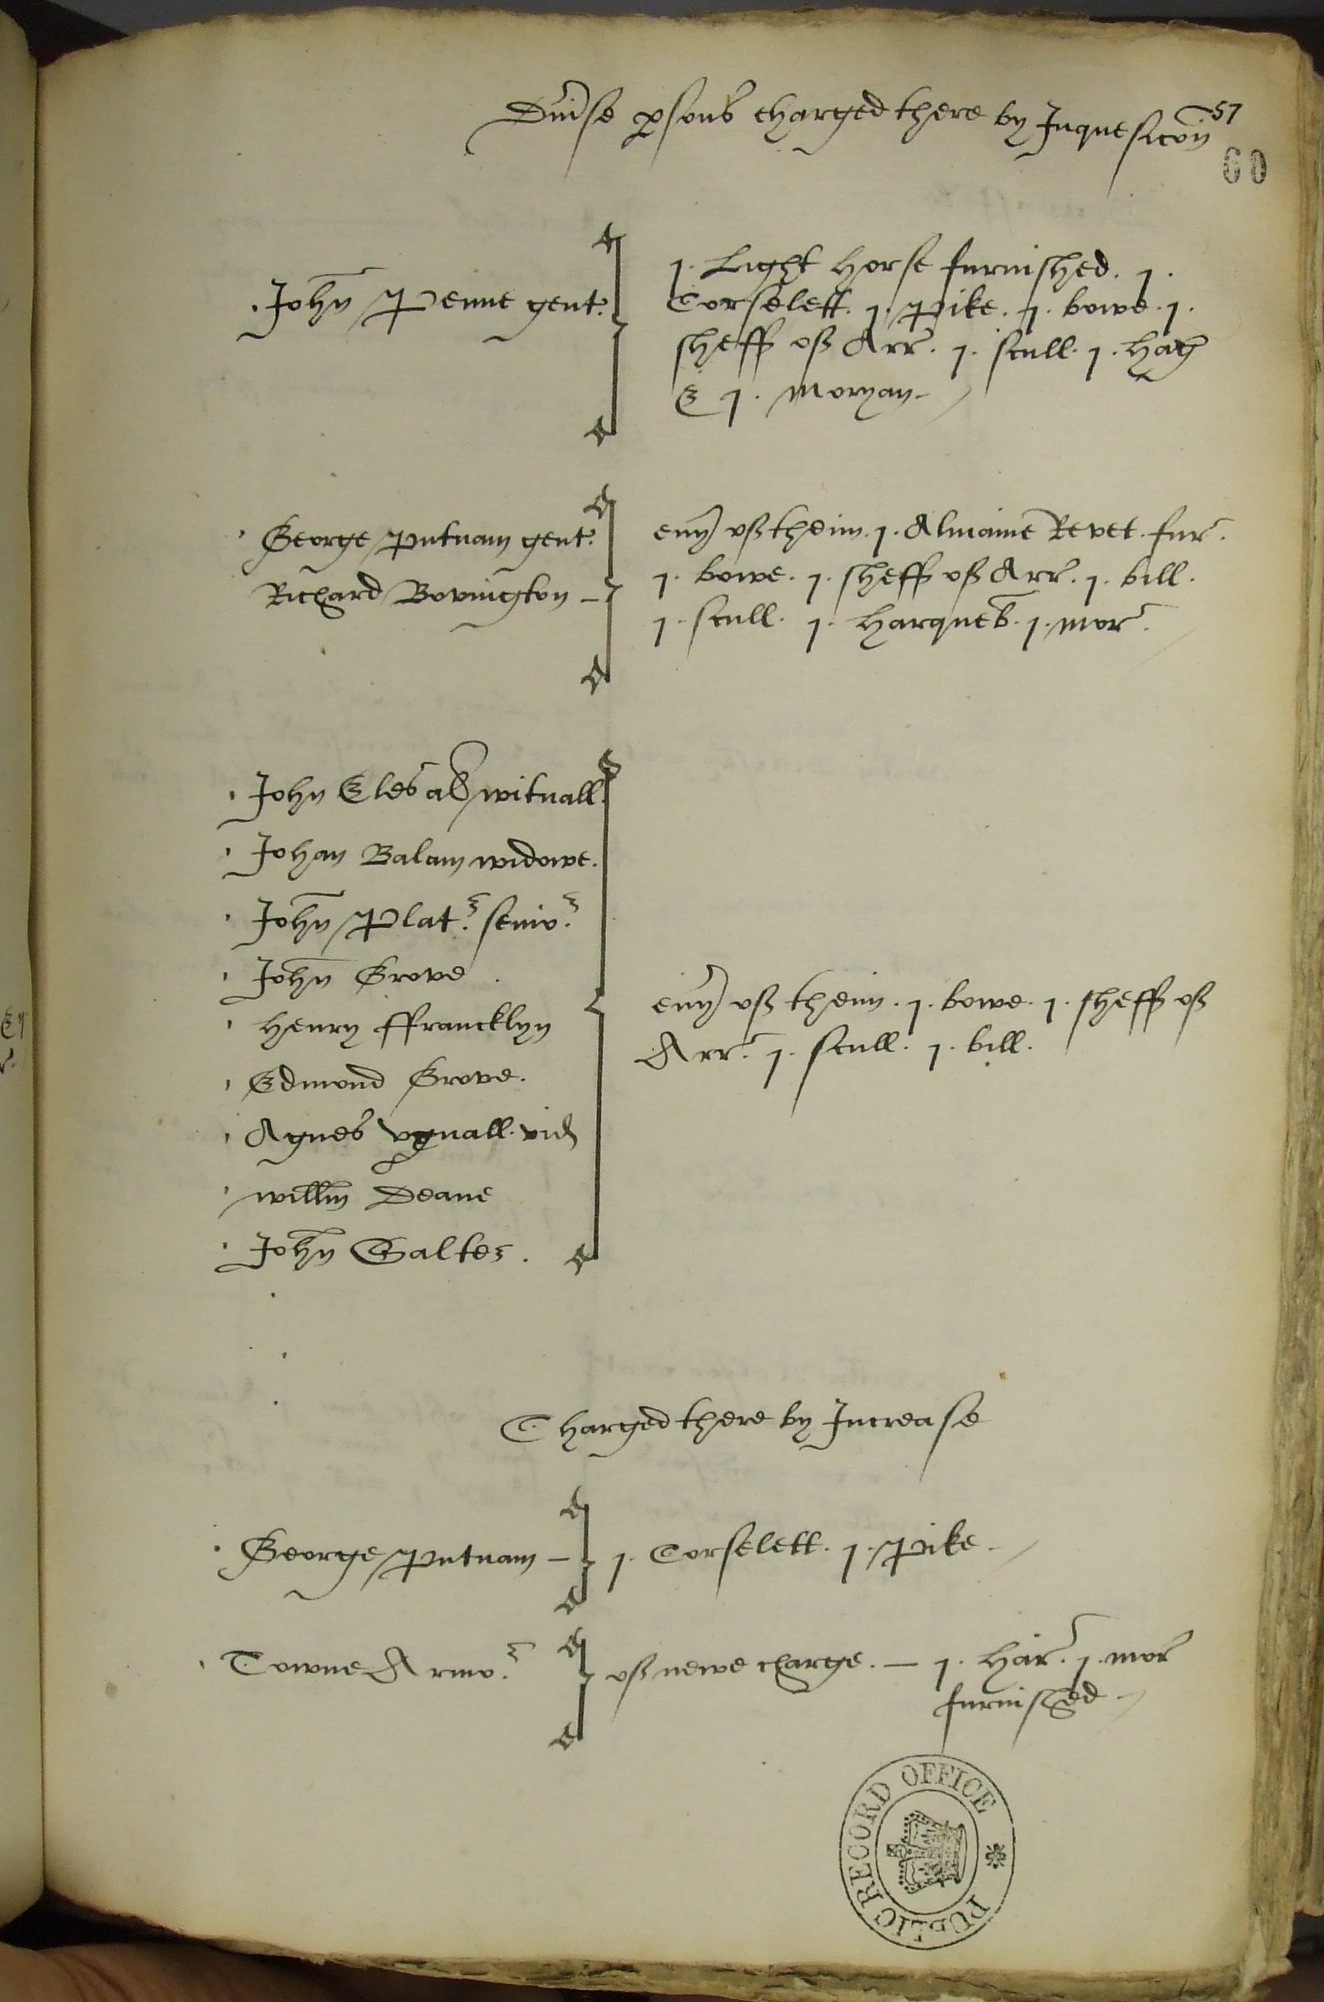 Duise psons charged there by Inquesicon
57
60
John Penne gent.
1. Light horse furnished. 1.
Corselett. 1. Pike. 1. bowe. 1.
sheff of Arr. 1. scull. 1. haq
& 1. moryan
George Putnam gent.
Richard Bovington
euy of theim. 1. Almaine Revet. fur.
1. bowe. 1. sheff of Arr. 1. bill.
1. scull. 1. harqueb. 1. mor.
John Eles als witnall.
Johan Balam widowe.
John Plat. senio.
John Grove
Henry ffrancklyn
Edmond Grove.
Agnes vid
willm Deane
John Baltes.
euy of theim. 1. bowe. 1. sheff of
Arr. 1. scull. 1. bill.
Charged there by Increase
George Putnam
1. Corselett. 1. Pike.
Towne Armo.
of newe charge. 1. har. 1. mor
furnished
PUBLIC RECORD OFFICE